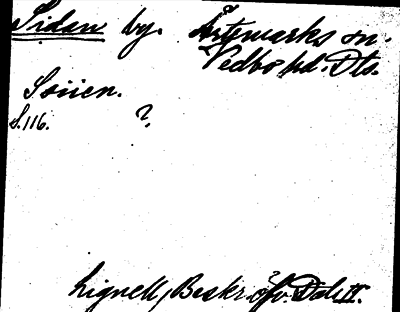 Sidan by. Årtemarks sn.
Vedbo hd. Dls.
Ssiien.
S. 116. ?
Lignell, Beskr. öfv. Dal II.